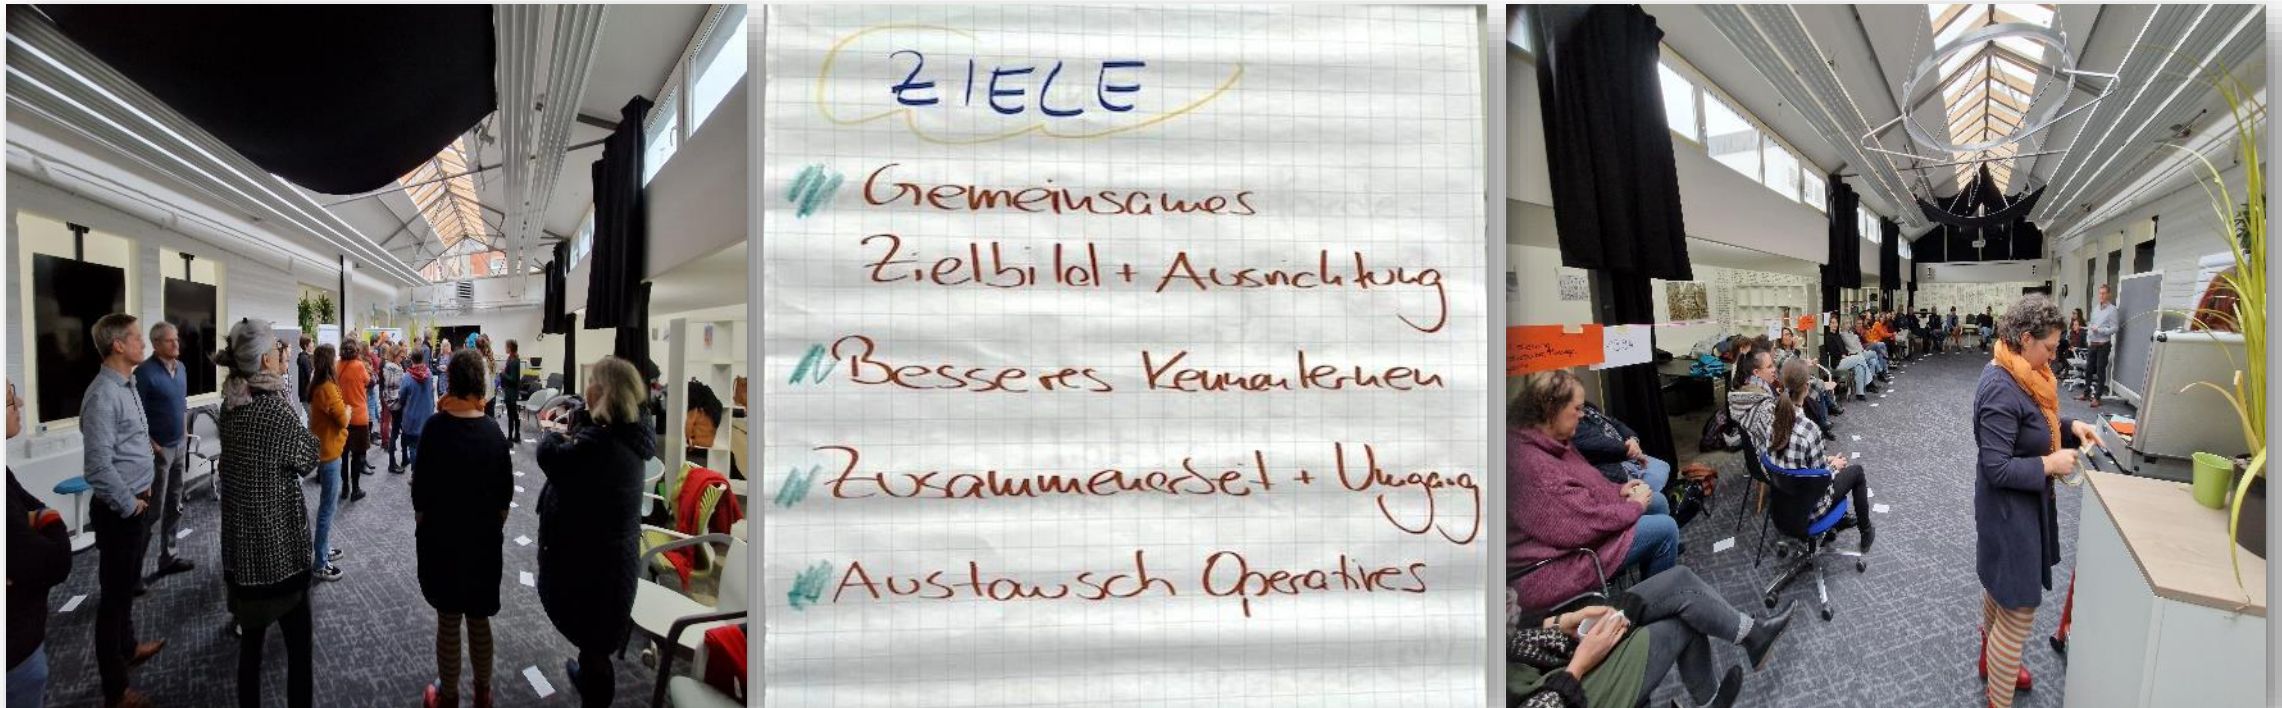 ZIELE
Gemeinsames
Zielbild + Ausrichtung
Besseres Kennenlernen
Zusammenarbeit + Umgang
Austausch Operatives
1994